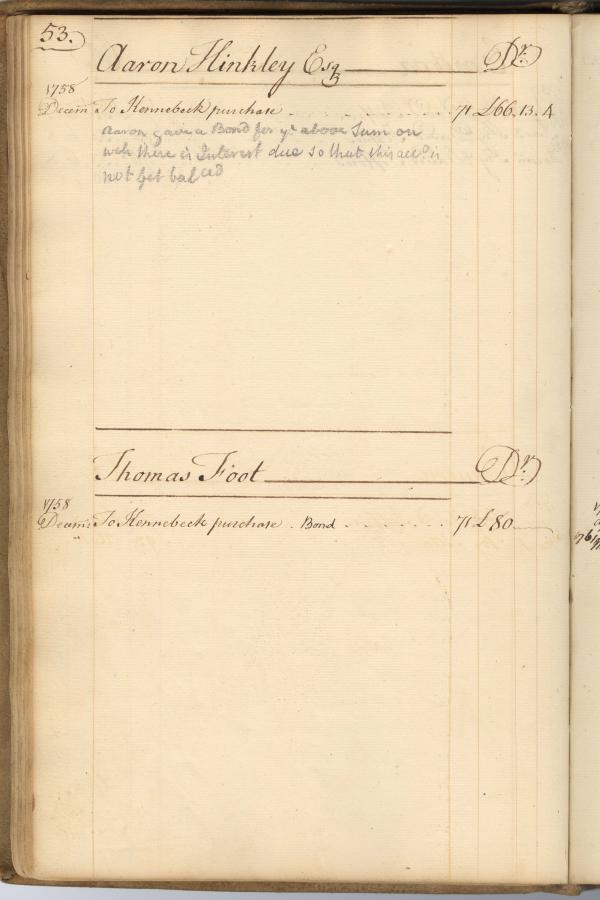 53.
Aaron Hinkley Esqr Dr.
1758
Decem To Kennebeck purchase . . . . . . . . . 71 £66. 13. 4
Aaron gave a Bond for ye above Sum on
wch there is Interest due so that this acco. is
not yet balced
Thomas Foot Dr.
1758
Decem To Kennebeck purchase . Bond . . . . . . 71 £80